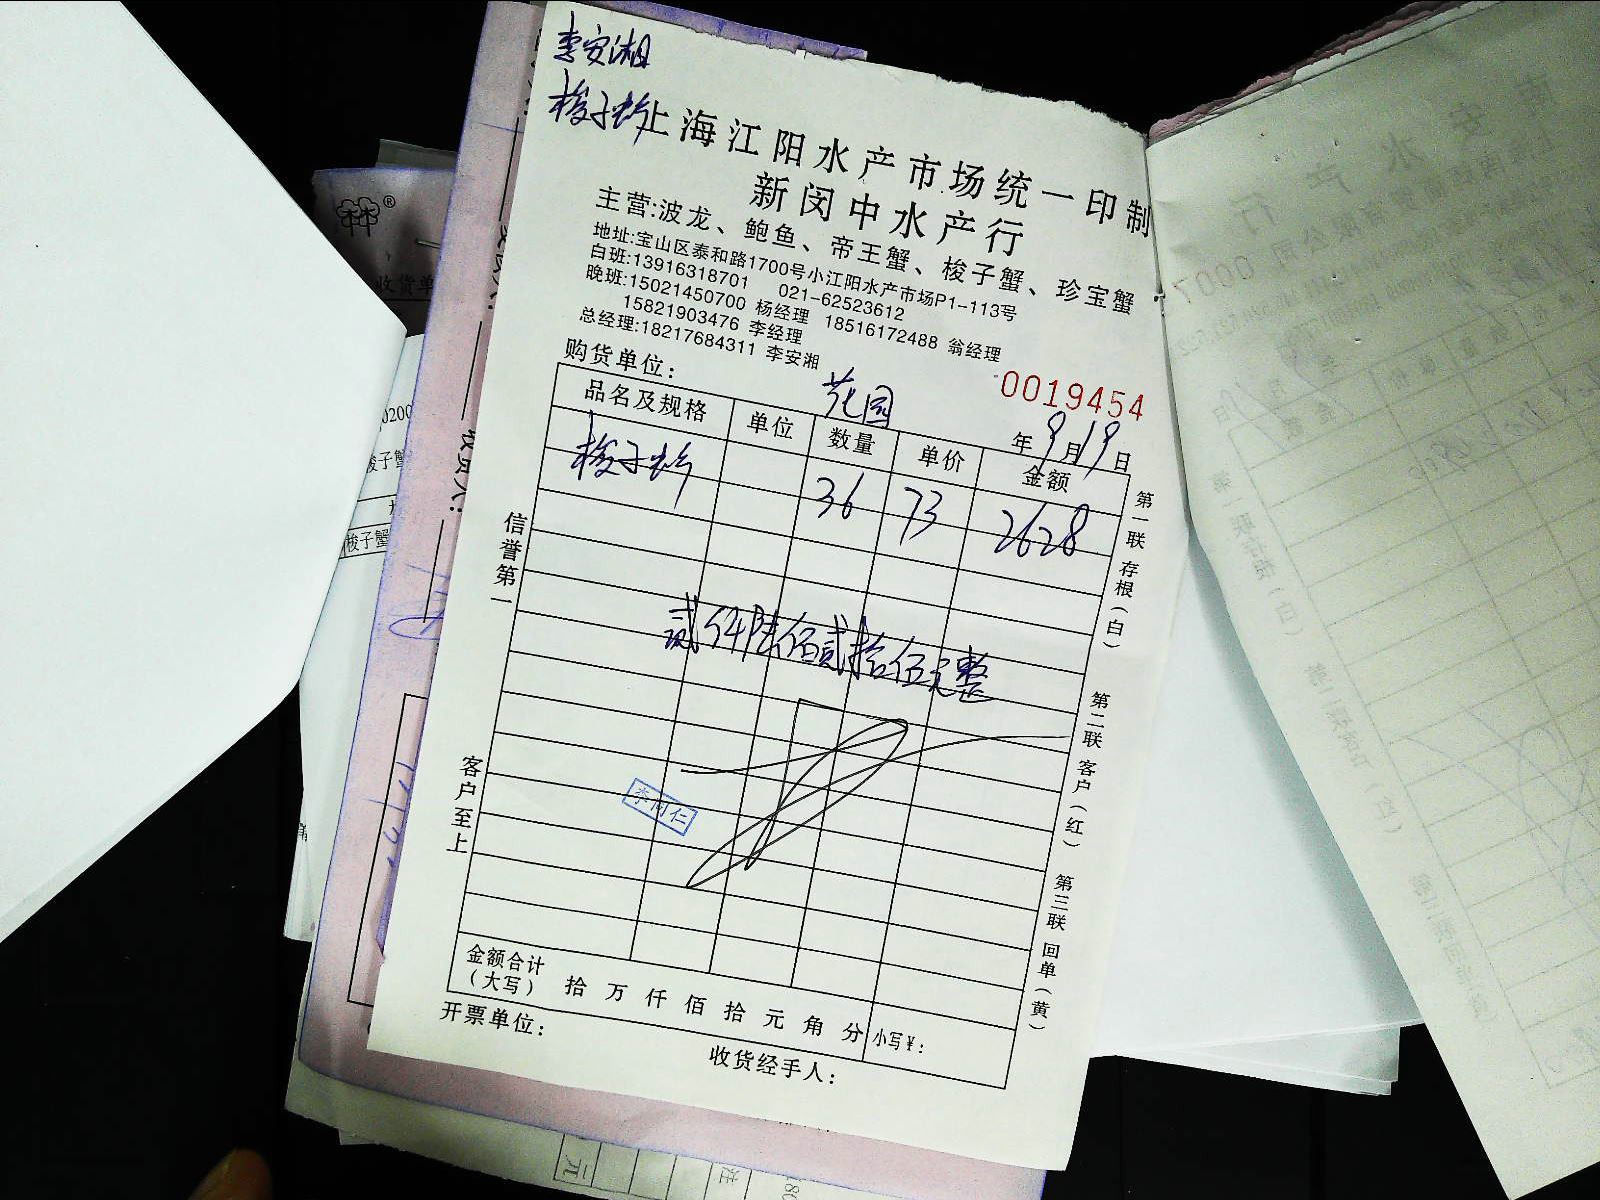 李安湘
梭子蟹
上海江阳水产市场统一印制
新闵中水产行
主营:波龙、鲍鱼、帝王蟹、梭子蟹、珍宝蟹
地址:宝山区泰和路1700号小江阳水产市场P1-113号
白班:13916318701 021-62523612
晚班:15021450700 杨经理 18516172488 翁经理
15821903476 李经理
总经理:18217684311 李安湘
0019454
购货单位: 花园 年9月19日
品名及规格 单位 数量 单价 金额
梭子蟹 36 73 2628
贰仟陆佰贰拾伍元整
李同仁
金额合计
(大写) 拾 万 仟 佰 拾 元 角 分 小写¥:
开票单位: 收货经手人:
信誉第一
客户至上
第一联 存根(白)
第二联 客户(红)
第三联 回单(黄)
收货单
梭子蟹
梭子蟹